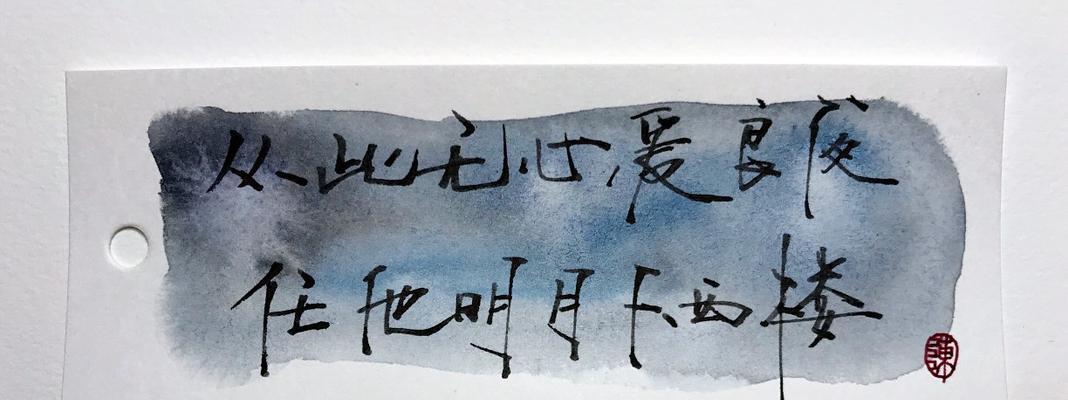 从此无心爱良夜
任他明月下西楼
陳